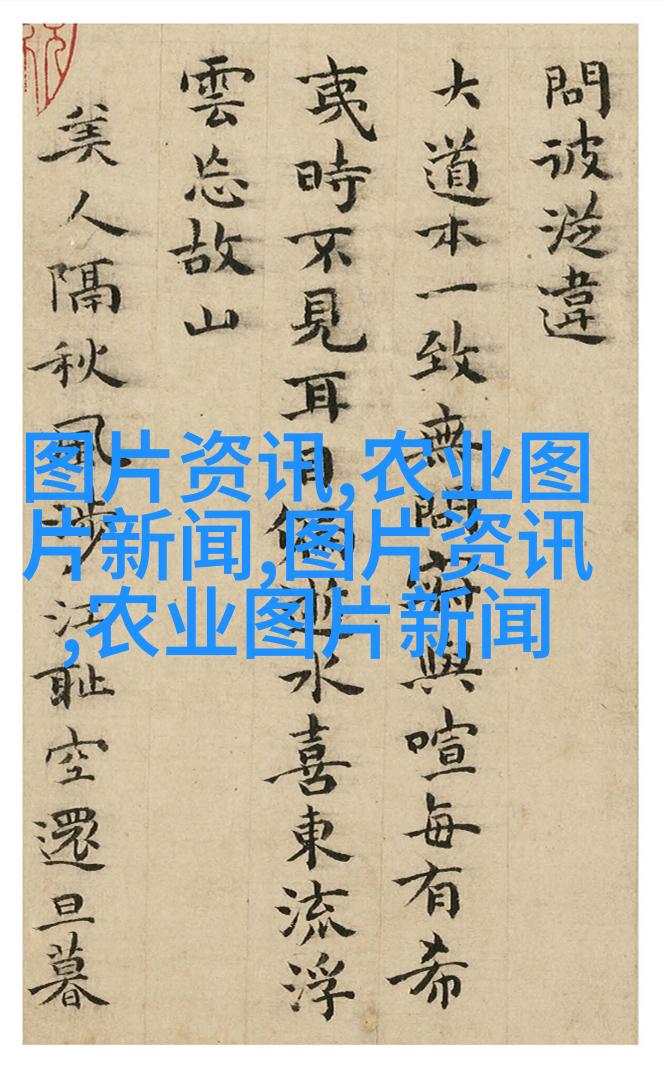 問彼從違
大道本一致無問寂與喧每有希
夷時不見耳目逝水喜東流浮
雲忘故山
美人隔秋風涉江恥空還旦暮
图片资讯,农业图
片新闻,图片资讯
,农业图片新闻